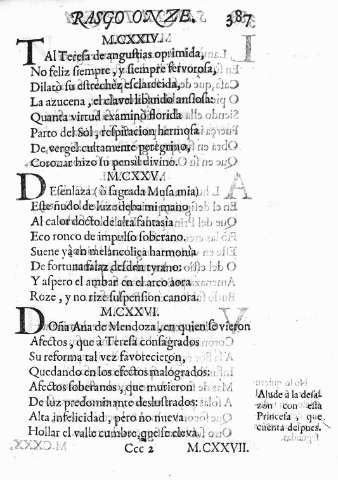 RASGO ONZE. 387
M.CXXIV.
TAl Teresa de angustias oprimida,
No feliz siempre, y siempre fervorosa,
Dilatò su estrechèz esclarecida,
La azucena, el clavel libando ansiosa:
Quanta virtud examinò florida
Parto del Sol, respiracion hermosa
De vergel cultamente peregrino,
Coronar hizo su pensil divino.
M.CXXV.
DEsenlaza (ò sagrada Musa mia)
Este nudo de luz deba mi mano
Al calor docto de alta fantasia
Eco ronco de impulso soberano.
Suene yà en melancolica harmonia
De fortuna falaz desden tyrano:
Y aspero el ambar en el arco aora
Roze, y no rize suspension canora.
M.CXXVI.
DOña Ana de Mendoza, en quien se vieron
Afectos, que à Teresa consagrados
Su reforma tal vez favorecieron,
Quedando en los efectos malogrados:
Afectos soberanos, que murieron
De luz predominante deslustrados:
Alta infelicidad, pero no nueva
Hollar el valle cumbre, que se eleva.
Alude à la desazòn
con esta
Princesa, que
cuenta despues.
Ccc 2 M.CXXVII.